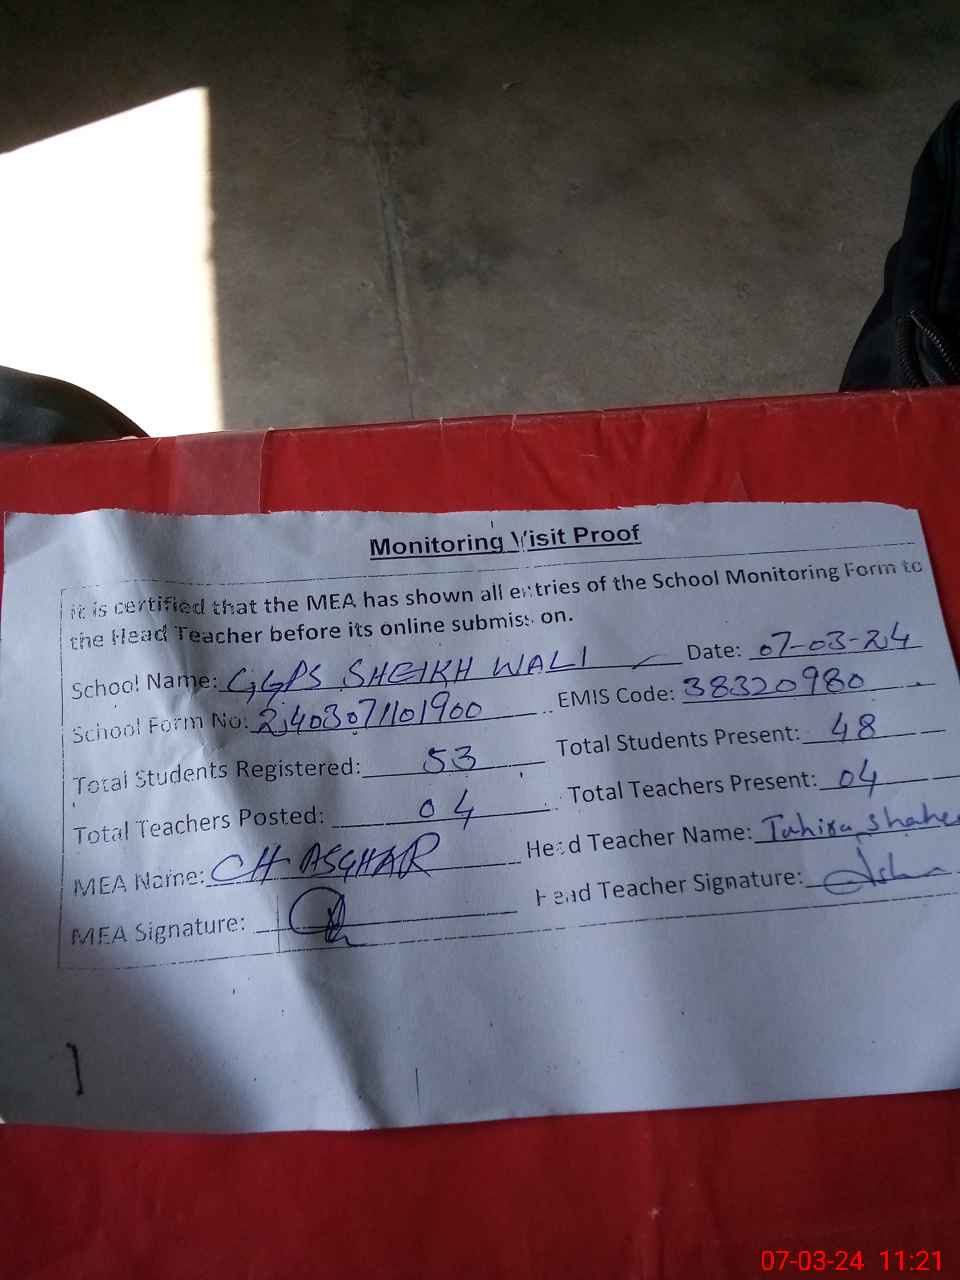 Monitoring Visit Proof
It is certified that the MEA has shown all entries of the School Monitoring Form to
the Head Teacher before its online submission.
School Name: GGPS SHEIKH WALI Date: 07-03-24
School Form No: 2403071101900 EMIS Code: 38320980
Total Students Registered: 53 Total Students Present: 48
Total Teachers Posted: 04 Total Teachers Present: 04
MEA Name: CH ASGHAR Head Teacher Name: Tahira Shahe
MEA Signature: Head Teacher Signature:
07-03-24 11:21